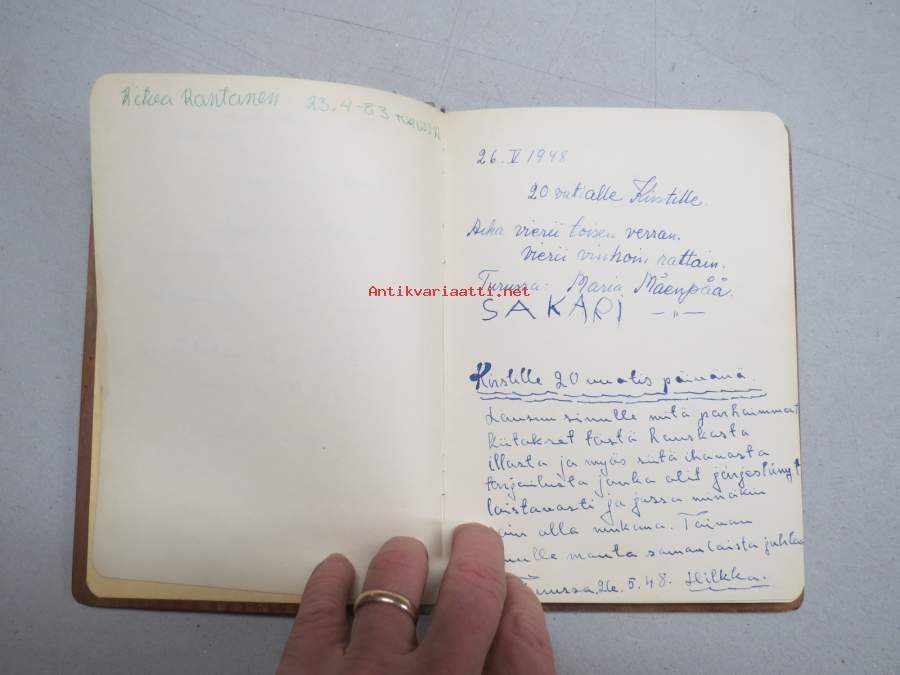 Ritva Rantanen 23.4-83 TURUSSA
26. V 1948
20 vutialle Kirstille.
Aika vierii toisen verran.
vierii vinhoin rattain.
Turussa: Maria Mäenpää.
Antikvariaatti.net
SAKARI — " —
Kirstille 20 vuotis päivänä
Lausun sinulle mitä parhaimmat
kiitokset tästä hauskasta
illasta ja myös siitä ihanasta
tarjoilusta jonka olit järjestänyt
loistavasti ja jossa minäkin
sain olla mukana. Toivon
sinulle monta samanlaista juhlaa
Turussa 26.5.48. Hilkka.